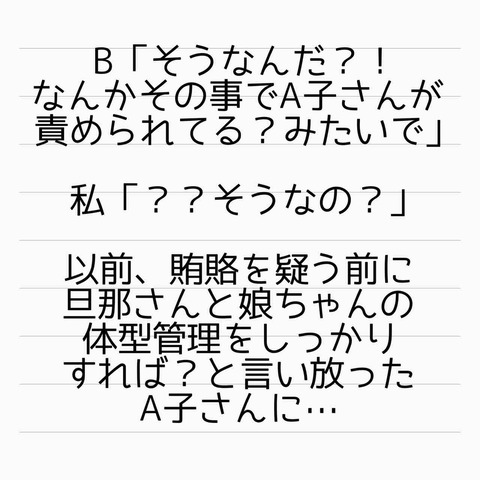 B「そうなんだ？！
なんかその事でA子さんが
責められてる？みたいで」
私「？？そうなの？」
以前、賄賂を疑う前に
旦那さんと娘ちゃんの
体型管理をしっかり
すれば？と言い放った
A子さんに…